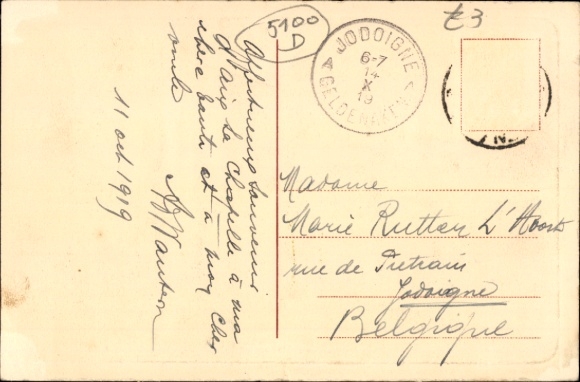 £3
5100
D
JODOIGNE
6-7
14
X
19
GELDENAKEN
Affectueux souvenir
d'Aix la Chapelle à ma
chère tante et à mon cher
oncle
11 oct 1919
Madame
Marie Rutten L'Hoost
rue de Piétrain
Jodoigne
Belgique